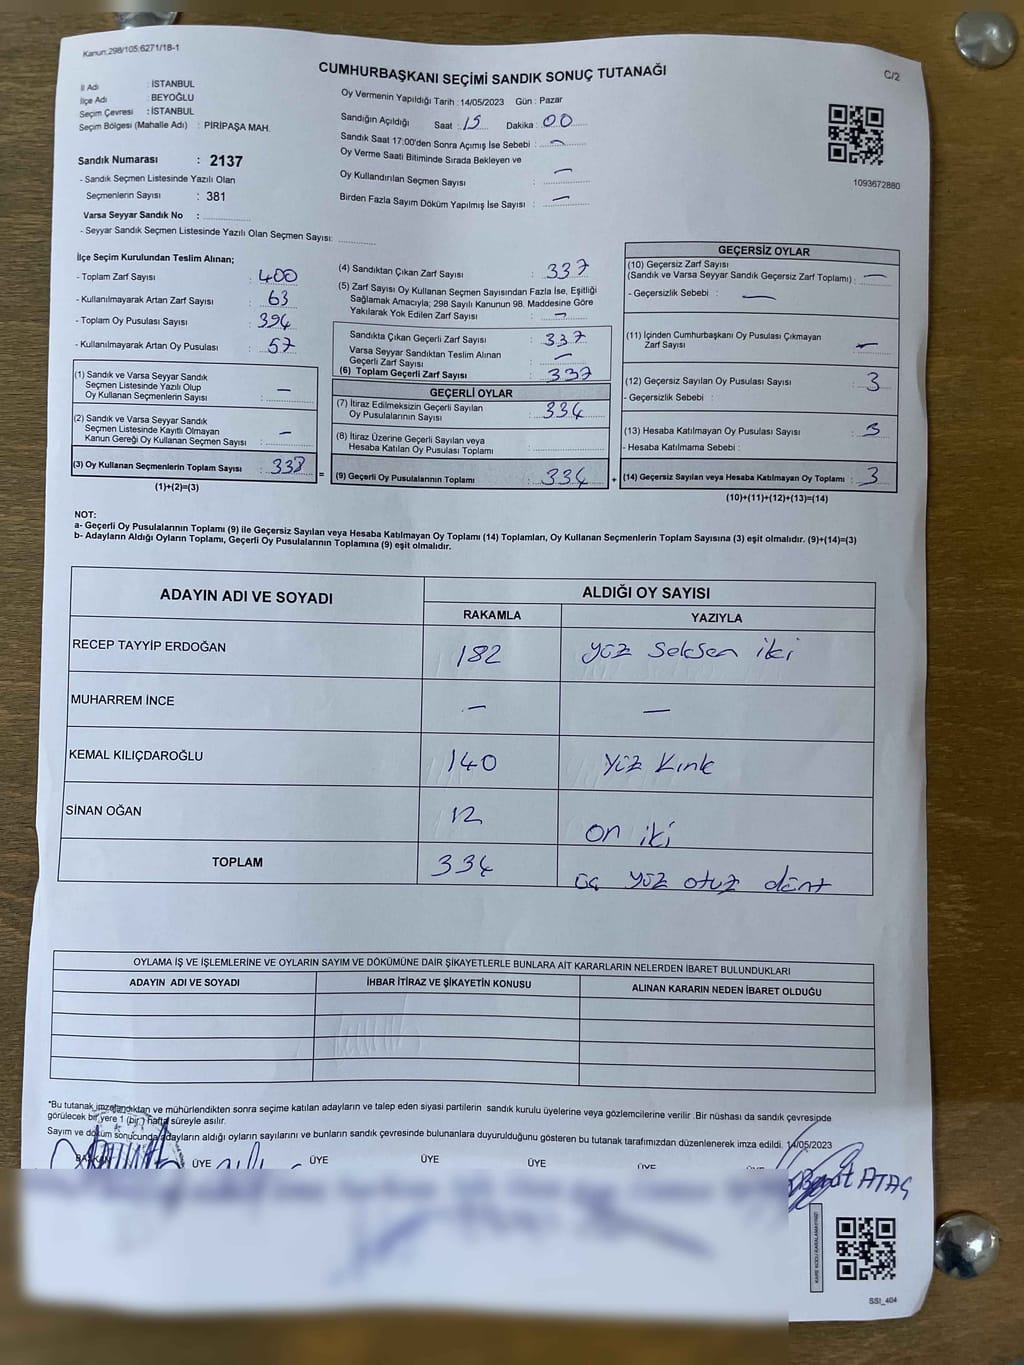 Kanun:298/105;6271/18-1
C/2
CUMHURBAŞKANI SEÇİMİ SANDIK SONUÇ TUTANAĞI
İl Adı : İSTANBUL
İlçe Adı : BEYOĞLU
Seçim Çevresi : İSTANBUL
Seçim Bölgesi (Mahalle Adı) : PİRİPAŞA MAH.
Sandık Numarası : 2137
- Sandık Seçmen Listesinde Yazılı Olan
Seçmenlerin Sayısı : 381
Varsa Seyyar Sandık No :
- Seyyar Sandık Seçmen Listesinde Yazılı Olan Seçmen Sayısı:
Oy Vermenin Yapıldığı Tarih : 14/05/2023 Gün : Pazar
Sandığın Açıldığı Saat : 15 Dakika : 00
Sandık Saat 17:00'den Sonra Açımış İse Sebebi : —
Oy Verme Saati Bitiminde Sırada Bekleyen ve
Oy Kullandırılan Seçmen Sayısı —
Birden Fazla Sayım Döküm Yapılmış İse Sayısı : —
1093672880
İlçe Seçim Kurulundan Teslim Alınan;
- Toplam Zarf Sayısı : 400
- Kullanılmayarak Artan Zarf Sayısı : 63
- Toplam Oy Pusulası Sayısı : 394
- Kullanılmayarak Artan Oy Pusulası : 57
(1) Sandık ve Varsa Seyyar Sandık
Seçmen Listesinde Yazılı Olup
Oy Kullanan Seçmenlerin Sayısı : —
(2) Sandık ve Varsa Seyyar Sandık
Seçmen Listesinde Kayıtlı Olmayan
Kanun Gereği Oy Kullanan Seçmen Sayısı : —
(3) Oy Kullanan Seçmenlerin Toplam Sayısı :
(1)+(2)=(3)
=
(4) Sandıktan Çıkan Zarf Sayısı : 337
(5) Zarf Sayısı Oy Kullanan Seçmen Sayısından Fazla İse, Eşitliği
Sağlamak Amacıyla; 298 Sayılı Kanunun 98. Maddesine Göre
Yakılarak Yok Edilen Zarf Sayısı : —
Sandıkta Çıkan Geçerli Zarf Sayısı : 337
Varsa Seyyar Sandıktan Teslim Alınan
Geçerli Zarf Sayısı : —
(6) Toplam Geçerli Zarf Sayısı : 337
GEÇERLİ OYLAR
(7) İtiraz Edilmeksizin Geçerli Sayılan
Oy Pusulalarının Sayısı : 334
(8) İtiraz Üzerine Geçerli Sayılan veya
Hesaba Katılan Oy Pusulası Toplamı :
(9) Geçerli Oy Pusulalarının Toplamı : 334
+
GEÇERSİZ OYLAR
(10) Geçersiz Zarf Sayısı
(Sandık ve Varsa Seyyar Sandık Geçersiz Zarf Toplamı) : —
- Geçersizlik Sebebi : —
(11) İçinden Cumhurbaşkanı Oy Pusulası Çıkmayan
Zarf Sayısı : —
(12) Geçersiz Sayılan Oy Pusulası Sayısı : 3
- Geçersizlik Sebebi :
(13) Hesaba Katılmayan Oy Pusulası Sayısı : 3
- Hesaba Katılmama Sebebi :
(14) Geçersiz Sayılan veya Hesaba Katılmayan Oy Toplamı : 3
(10)+(11)+(12)+(13)=(14)
NOT:
a- Geçerli Oy Pusulalarının Toplamı (9) ile Geçersiz Sayılan veya Hesaba Katılmayan Oy Toplamı (14) Toplamları, Oy Kullanan Seçmenlerin Toplam Sayısına (3) eşit olmalıdır. (9)+(14)=(3)
b- Adayların Aldığı Oyların Toplamı, Geçerli Oy Pusulalarının Toplamına (9) eşit olmalıdır.
ADAYIN ADI VE SOYADI
ALDIĞI OY SAYISI
RAKAMLA YAZIYLA
RECEP TAYYİP ERDOĞAN 182 yüz seksen iki
MUHARREM İNCE — —
KEMAL KILIÇDAROĞLU 140 Yüz Kırk
SİNAN OĞAN 12 on iki
TOPLAM 334 üç yüz otuz dört
OYLAMA İŞ VE İŞLEMLERİNE VE OYLARIN SAYIM VE DÖKÜMÜNE DAİR ŞİKAYETLERLE BUNLARA AİT KARARLARIN NELERDEN İBARET BULUNDUKLARI
ADAYIN ADI VE SOYADI İHBAR İTİRAZ VE ŞİKAYETİN KONUSU ALINAN KARARIN NEDEN İBARET OLDUĞU
*Bu tutanak imzalandıktan ve mühürlendikten sonra seçime katılan adayların ve talep eden siyasi partilerin sandık kurulu üyelerine veya gözlemcilerine verilir .Bir nüshası da sandık çevresinde
görülecek bir yere 1 (bir ) hafta süreyle asılır.
Sayım ve döküm sonucunda adayların aldığı oyların sayılarını ve bunların sandık çevresinde bulunanlara duyurulduğunu gösteren bu tutanak tarafımızdan düzenlenerek imza edildi. 14/05/2023
BAŞKAN ÜYE ÜYE ÜYE ÜYE ÜYE ÜYE
ATAŞ
SSI_404